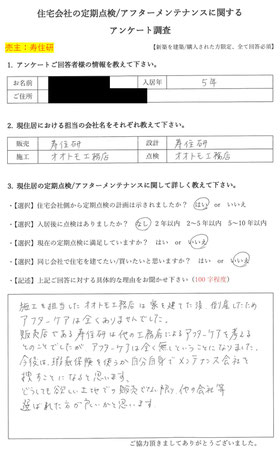 住宅会社の定期点検/アフターメンテナンスに関する
アンケート調査
売主：寿住研
【新築を建築/購入された方限定、全て回答必須】
1. アンケートご回答者様の情報を教えて下さい。
お名前 入居年 5年
ご住所
2. 現住居における担当の会社名をそれぞれ教えて下さい。
販売 寿住研 設計 寿住研
施工 オオトモ工務店 点検 オオトモ工務店
3. 現住居の定期点検/アフターメンテナンスに関して詳しく教えて下さい。
・【選択】住宅会社側から定期点検の計画は示されましたか？ はい or いいえ
・【選択】入居後に点検はありましたか？ なし 2年以内 2～5年以内 5～10年以内
・【選択】現在の定期点検に満足していますか？ はい or いいえ
・【選択】同じ会社で住宅を建てたい/買いたいと思いますか？ はい or いいえ
・【記述】上記ご回答に対する具体的な理由をお聞かせ下さい（100字程度）
施工を担当したオオトモ工務店は家を建てた後、倒産したため
アフターケアは全くありませんでした。
販売店である寿住研は他の工務店によるアフターケアを考える
とのことでしたが、アフターケアは全く無しということになりました。
今後は、瑕疵保険を使うか自分自身でメンテナンス会社を
探すことになると思います。
どうしても欲しい土地でり販売でない限り、他の会社等
選ばれた方が良いかと思います。
ご協力頂きましてありがとうございました。